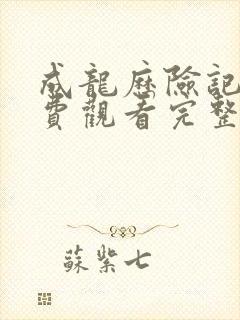 成龍歷險記
費觀看完整
蘇紫七